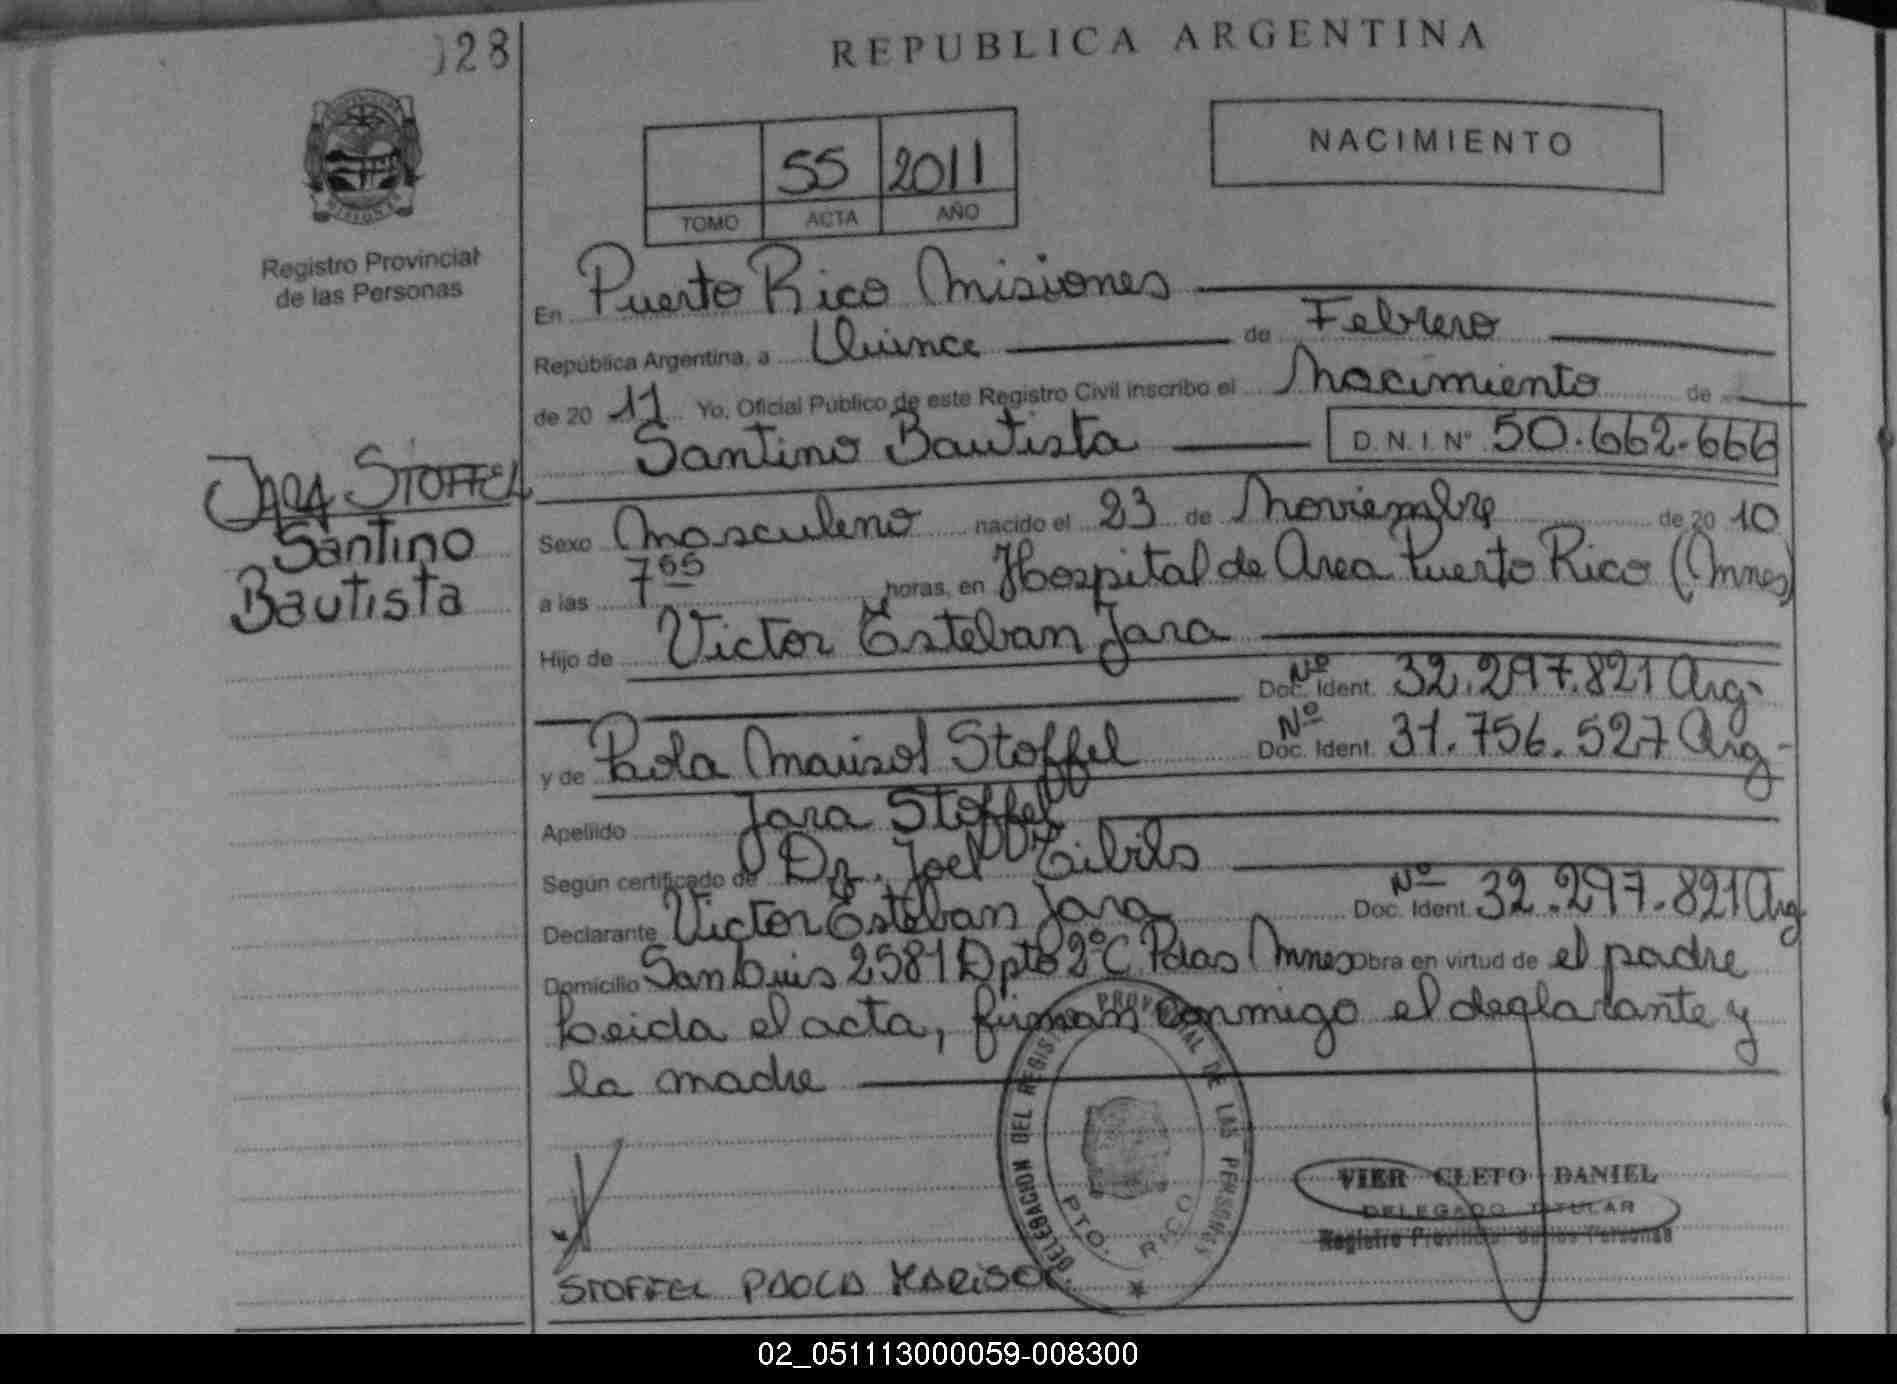 128
REPUBLICA ARGENTINA
NACIMIENTO
55 2011
TOMO ACTA AÑO
Registro Provincial
de las Personas
En Puerto Rico Misiones
República Argentina, a Quince de Febrero
de 20 11 Yo, Oficial Público de este Registro Civil inscribo el Nacimiento de
Santino Bautista D.N.I.Nº 50.662.666
Jara STOFFEL
Santino
Bautista
Sexo Masculino nacido el 23 de Noviembre de 20 10
a las 7 55 horas, en Hospital de Area Puerto Rico (Mnes)
Hijo de Victor Esteban Jara
Nº
Doc. Ident. 32.297.821 Arg-
Nº
y de Paola Marisol Stoffel Doc. Ident. 31.756.527 Arg-
Apellido Jara Stoffel
Según certificado de Dr. Joel Cibils
Nº
Declarante Victor Esteban Jara Doc. Ident. 32.297.821 Arg
Domicilio San Luis 2581 Dpto 2ºC Pdas Mnes obra en virtud de el padre
Leida el acta, firman conmigo el declarante y
la madre
DELEGACION DEL REGISTRO PROVINCIAL DE LAS PERSONAS
PTO. RICO
VIER CLETO DANIEL
DELEGADO TITULAR
Registro Provincial de las Personas
STOFFEL PAOLA MARISOL
02_051113000059-008300